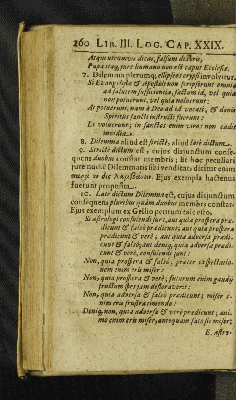 260 LIB. III. LOG. CAP. XXIX.
Atqui utrumvis dicas, falsum dixeris,
Papa itaq; jure humano non est caput Ecclesiæ.
7. Dilemma plerumq; ellipseos cryptis involvitur.
Si Evangelistæ & Apostoli non scripserunt omnia
ad salutem sufficientia, factum id, vel quia
non potuerunt, vel quia noluerunt:
At potuerunt, nam à Deo ad id vocati, & dono
Spiritus sancti instructi fuerunt:
Et voluerunt; in sanctos enim viros non cadit
invidia.
8. Dilemma aliud est strictè, aliud latè dictum.
9. Strictè dictum est, cujus disjunctum conse-
quens duobus constat membris; & hoc peculiari
jure nomen Dilemmatis sibi vendicat; dicitur enim
Ejus exempla hactenus
fuerunt proposita.
10. Latè dictum Dilemma est, cujus disjunctum
consequens pluribus quàm duobus membris constat.
Ejus exemplum ex Gellio petitum tale esto.
Si astrologi consulendi sunt, aut quia prospera præ-
dicunt & falsò prædicunt; aut quia prospera
prædicunt & verè; aut quia adversa prædi-
cunt & falsò; aut deniq; quia adversa prædi-
cunt & verè, consulendi sunt:
Non, quia prospera & falsò; præter expectatio-
nem enim eris miser:
Non, quia prospera & verè; futurum enim gaudij
fructum spes jam defloraverit:
Non, quia adversa & falsò prædicunt; miser e-
nim eris frustra timendo:
Deniq; non, quia adversa & verè prædicunt; ani-
mo enim eris miser, antequam fato sis miser;
E. astro-